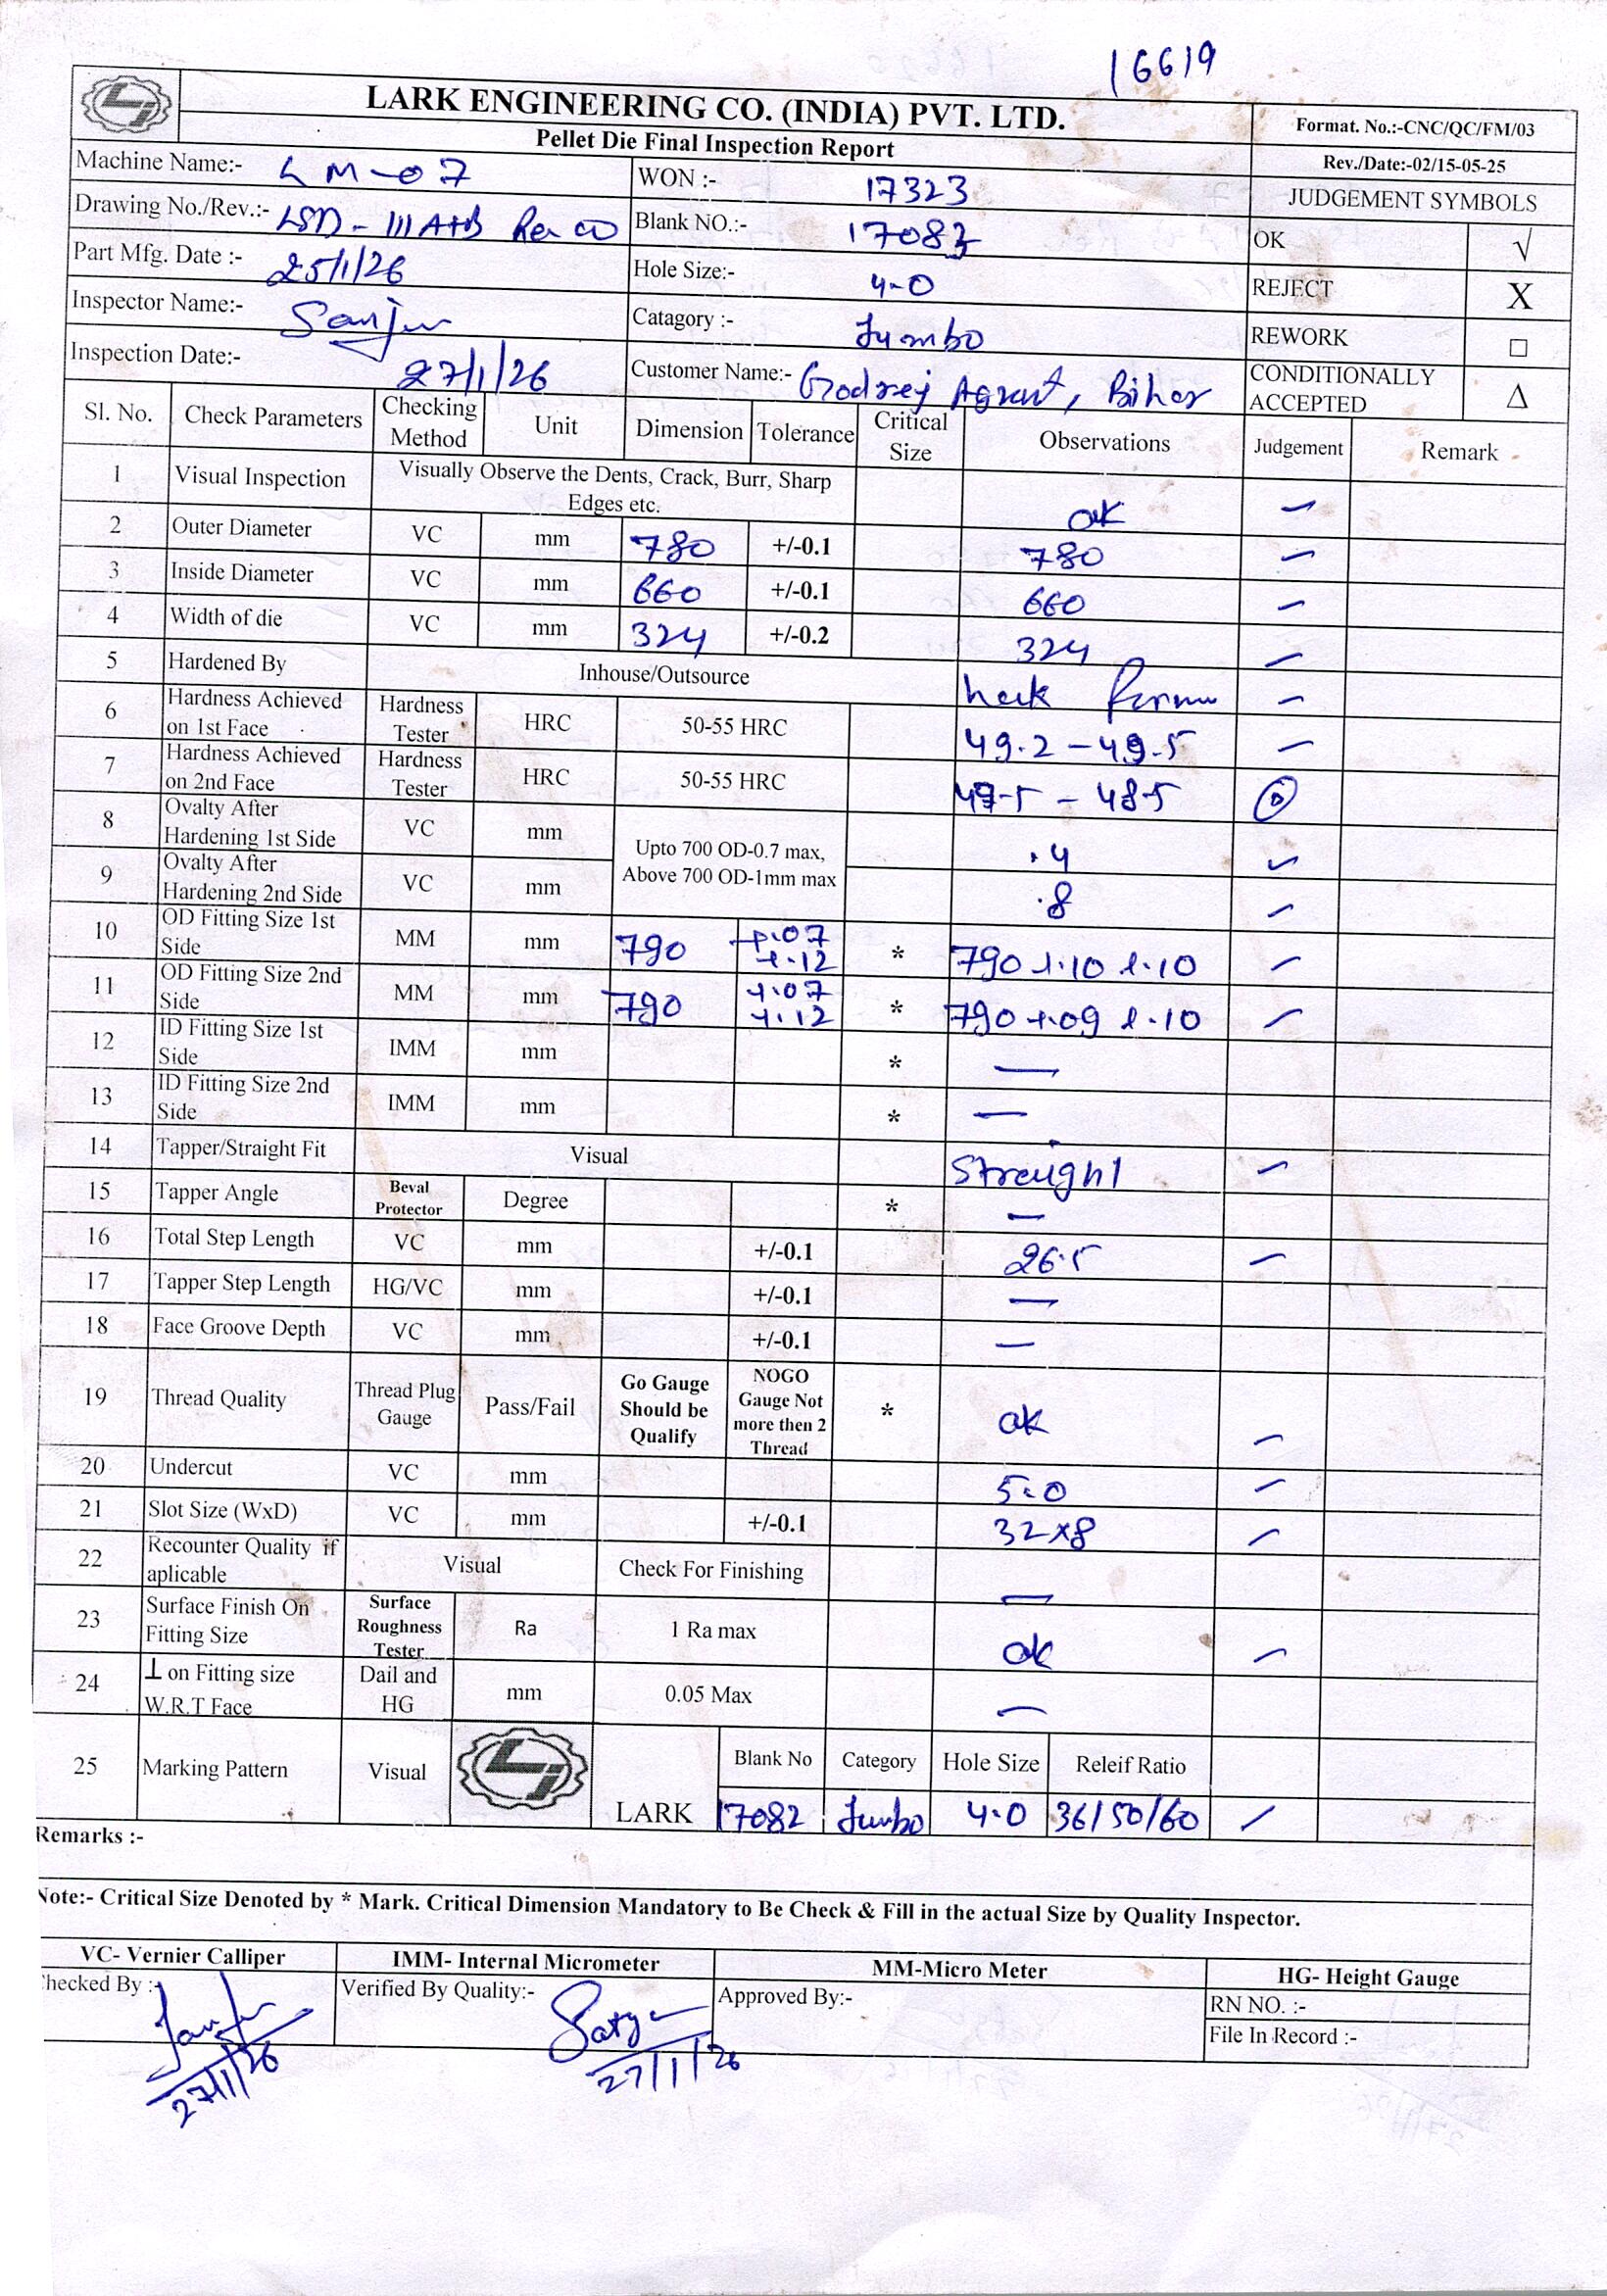 16619
LARK ENGINEERING CO. (INDIA) PVT. LTD.
Pellet Die Final Inspection Report
Format. No.:-CNC/QC/FM/03
Rev./Date:-02/15-05-25
Machine Name:- LM-07 WON :- 17323 JUDGEMENT SYMBOLS
Drawing No./Rev.:- LSD-III A+B Rev 00 Blank NO.:- 17082 OK √
Part Mfg. Date :- 25/1/26 Hole Size:- 4.0 REJECT X
Inspector Name:- Sanju Catagory :- Jumbo REWORK □
Inspection Date:- 27/1/26 Customer Name:- Godrej Agrovet, Bihar CONDITIONALLY ACCEPTED Δ
Sl. No. Check Parameters Checking Method Unit Dimension Tolerance Critical Size Observations Judgement Remark
1 Visual Inspection Visually Observe the Dents, Crack, Burr, Sharp Edges etc. ok
2 Outer Diameter VC mm 780 +/-0.1 780
3 Inside Diameter VC mm 660 +/-0.1 660
4 Width of die VC mm 324 +/-0.2 324
5 Hardened By Inhouse/Outsource
6 Hardness Achieved on 1st Face Hardness Tester HRC 50-55 HRC 49.2 - 49.5
7 Hardness Achieved on 2nd Face Hardness Tester HRC 50-55 HRC 47.5 - 48.5
8 Ovalty After Hardening 1st Side VC mm Upto 700 OD-0.7 max, Above 700 OD-1mm max .4
9 Ovalty After Hardening 2nd Side VC mm .8
10 OD Fitting Size 1st Side MM mm 790 +.07 +.12 * 790 +.10 +.10
11 OD Fitting Size 2nd Side MM mm 790 +.07 +.12 * 790 +.09 +.10
12 ID Fitting Size 1st Side IMM mm * —
13 ID Fitting Size 2nd Side IMM mm * —
14 Tapper/Straight Fit Visual Straight
15 Tapper Angle Beval Protector Degree * —
16 Total Step Length VC mm +/-0.1 26.5
17 Tapper Step Length HG/VC mm +/-0.1 —
18 Face Groove Depth VC mm +/-0.1 —
19 Thread Quality Thread Plug Gauge Pass/Fail Go Gauge Should be Qualify NOGO Gauge Not more then 2 Thread * ok
20 Undercut VC mm 5.0
21 Slot Size (WxD) VC mm +/-0.1 32x8
22 Recounter Quality if aplicable Visual Check For Finishing —
23 Surface Finish On Fitting Size Surface Roughness Tester Ra 1 Ra max ok
24 ⊥ on Fitting size W.R.T Face Dail and HG mm 0.05 Max —
25 Marking Pattern Visual LARK Blank No Category Hole Size Releif Ratio
17082 Jumbo 4.0 36/50/60
Remarks :-
Note:- Critical Size Denoted by * Mark. Critical Dimension Mandatory to Be Check & Fill in the actual Size by Quality Inspector.
VC- Vernier Calliper IMM- Internal Micrometer MM-Micro Meter HG- Height Gauge
Checked By :- Sanju Verified By Quality:- Satya Approved By:- RN NO. :-
File In Record :-
27/1/26 27/1/26